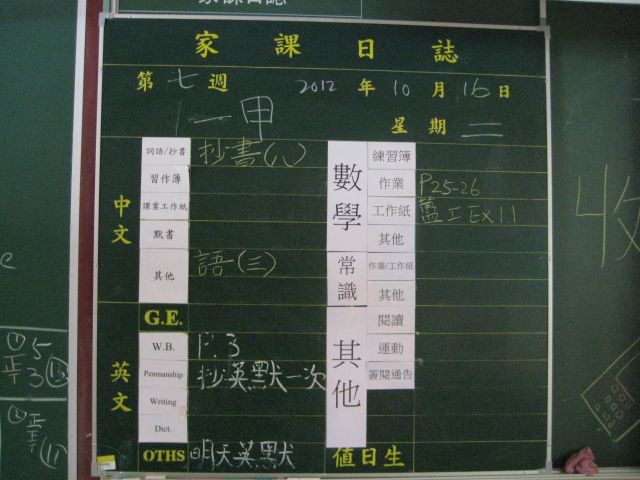 家課日誌
家課日誌
第七週 2012年10月16日
一甲 星期二
中文
詞語/抄書 抄書(八)
習作簿
課業工作紙
默書
其他 語(三)
數學
練習簿
作業 P25-26
工作紙 藍工EX11
其他
常識
作業/工作紙
其他
英文
G.E.
W.B. P.3
Penmanship 抄英默一次
Writing
Dict.
OTHS 明天英默
其他
閱讀
運動
簽閱通告
值日生
① 5
正 3 ⑬
② 正
正 (11)
收
e